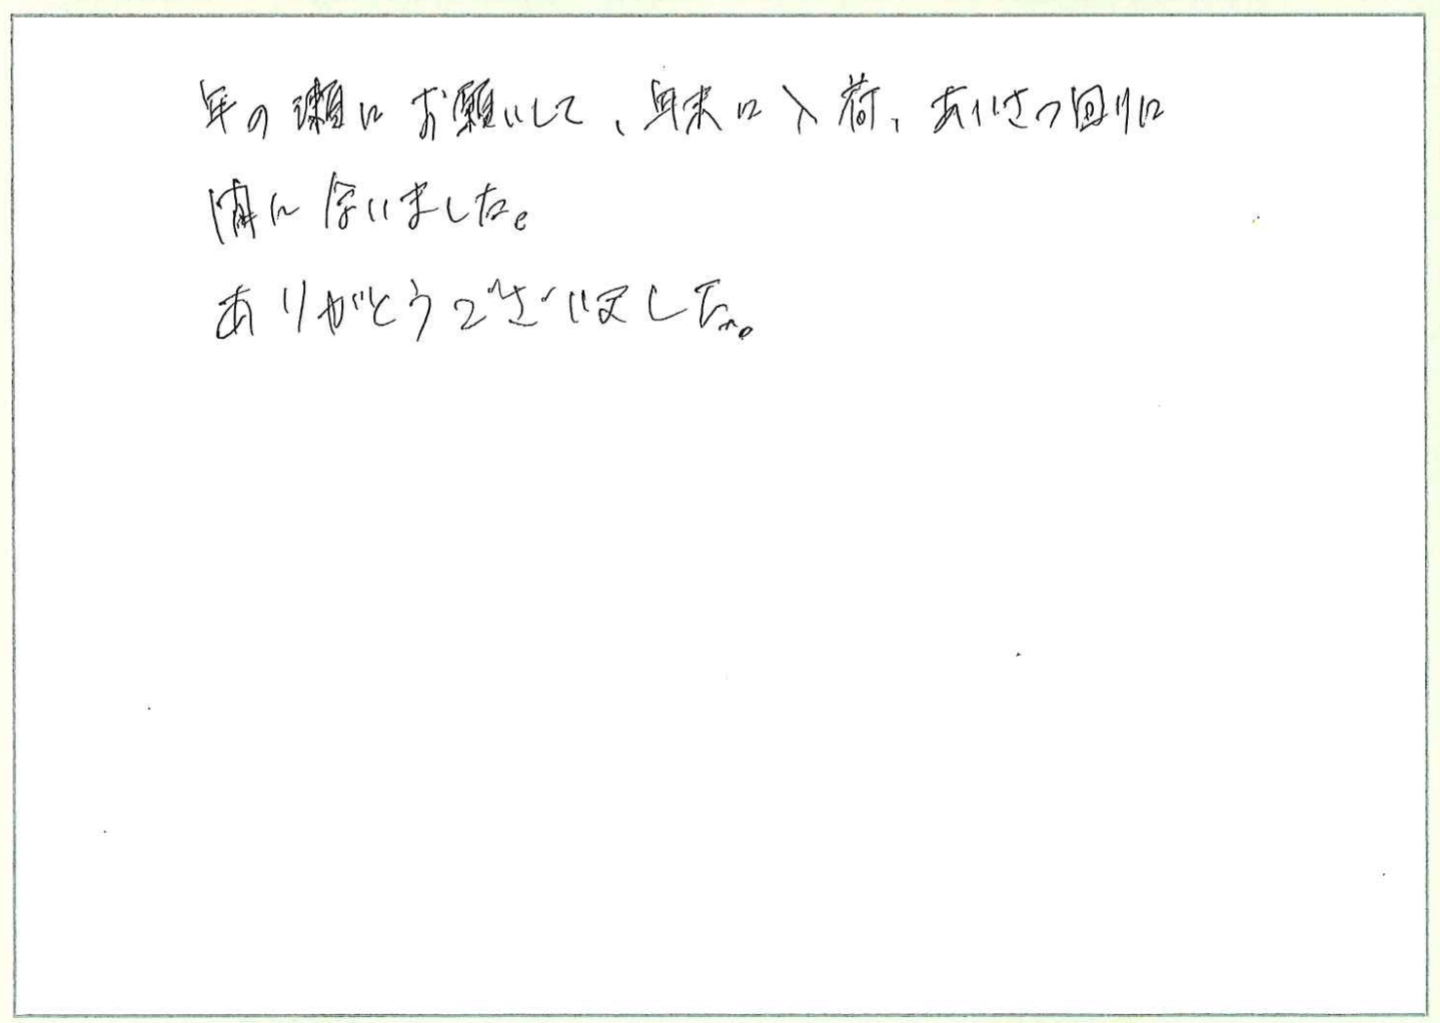 年の瀬にお願いして、年末に入荷、あいさつ回りに
間に合いました。
ありがとうございました。